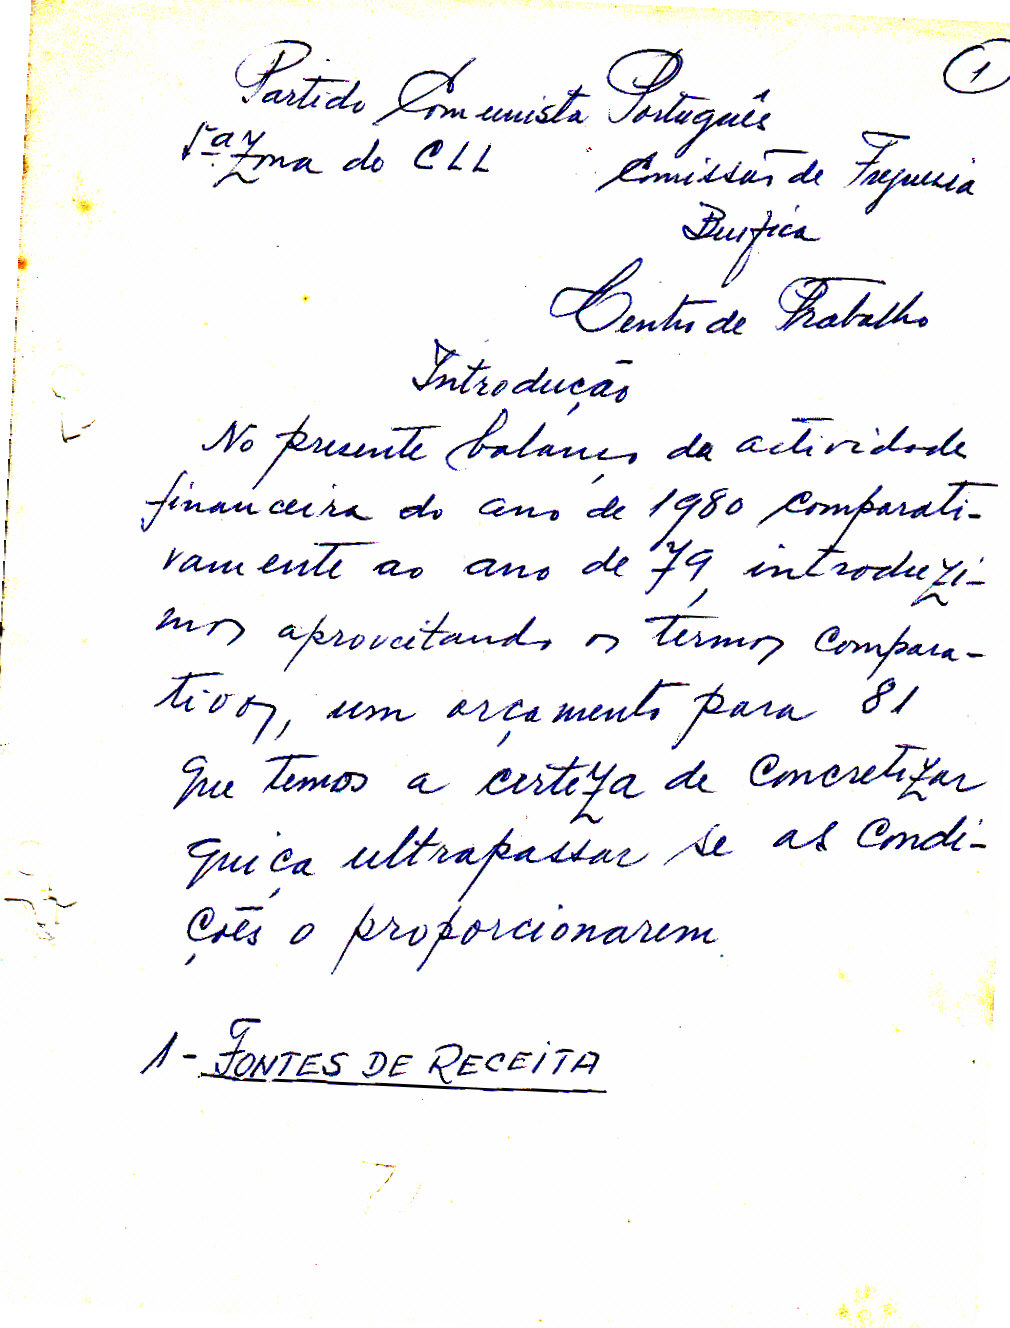 1
Partido Comunista Português
5ª Zona do CLL Comissão de Freguesia
Benfica
Centro de Trabalho
Introdução
No presente balanço da actividade
financeira do ano de 1980 comparati-
vamente ao ano de 79, introduzi-
mos aproveitando os termos compara-
tivos, um orçamento para 81
que temos a certeza de concretizar
quiça ultrapassar se as condi-
ções o proporcionarem
1 - FONTES DE RECEITA